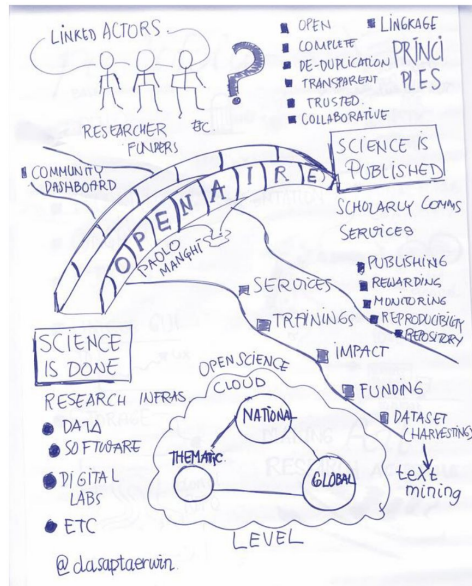 LINKED ACTORS
?
RESEARCHER
FUNDERS
ETC.
OPEN
COMPLETE
DE-DUPLICATION
TRANSPARENT
TRUSTED.
COLLABORATIVE
LINGKAGE
PRINCI
PLES
COMMUNITY
DASHBOARD
OPENAIRE
PAOLO
MANGHI
SCIENCE IS
PUBLISHED
SCHOLARLY COMMS
SERVICES
PUBLISHING
REWARDING
MONITORING
REPRODUCIBILITY
REPOSITORY
SERVICES
TRAININGS
IMPACT
FUNDING
DATASET
(HARVESTING)
text
mining
SCIENCE
IS DONE
RESEARCH INFRAS
DATA
SOFTWARE
DIGITAL
LABS
ETC
OPEN SCIENCE
CLOUD
NATIONAL
THEMATIC
GLOBAL
LEVEL
@dasaptaerwin